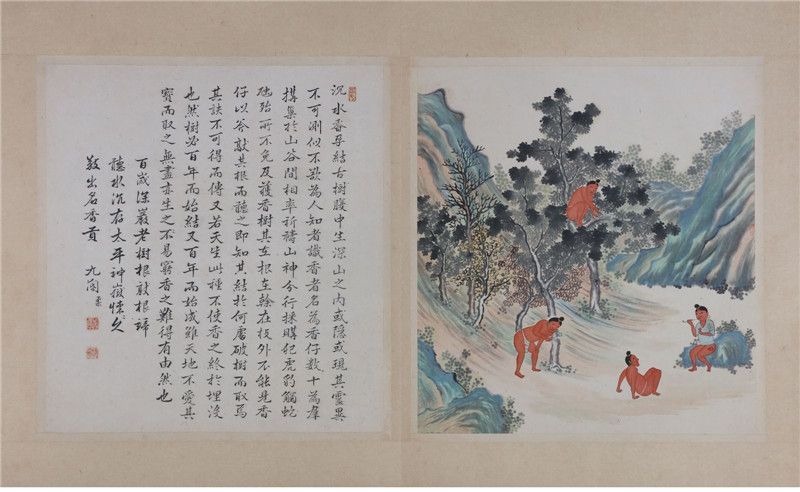 沉水香孕結古樹腹中生深山之內或隱或現其靈異
不可測似不欲為人知者識香者名為香仔數十為羣
搆巢於山谷間相率祈禱山神分行採購犯虎豹觸蛇
虺殆所不免及獲香樹其在根在榦在枝外不能見香
仔以斧敲其根而聽之即知其結於何處破樹而取焉
其訣不可得而傳又若天生此種不使香之終於埋沒
也然樹必百年而始結又百年而始成雖天地不愛其
寶而取之無盡亦生之不易窮香之難得有由然也
百歲深巖老樹根敲根諦
聽水沉存太平神嶽懷久
敬出名香貢 九閽